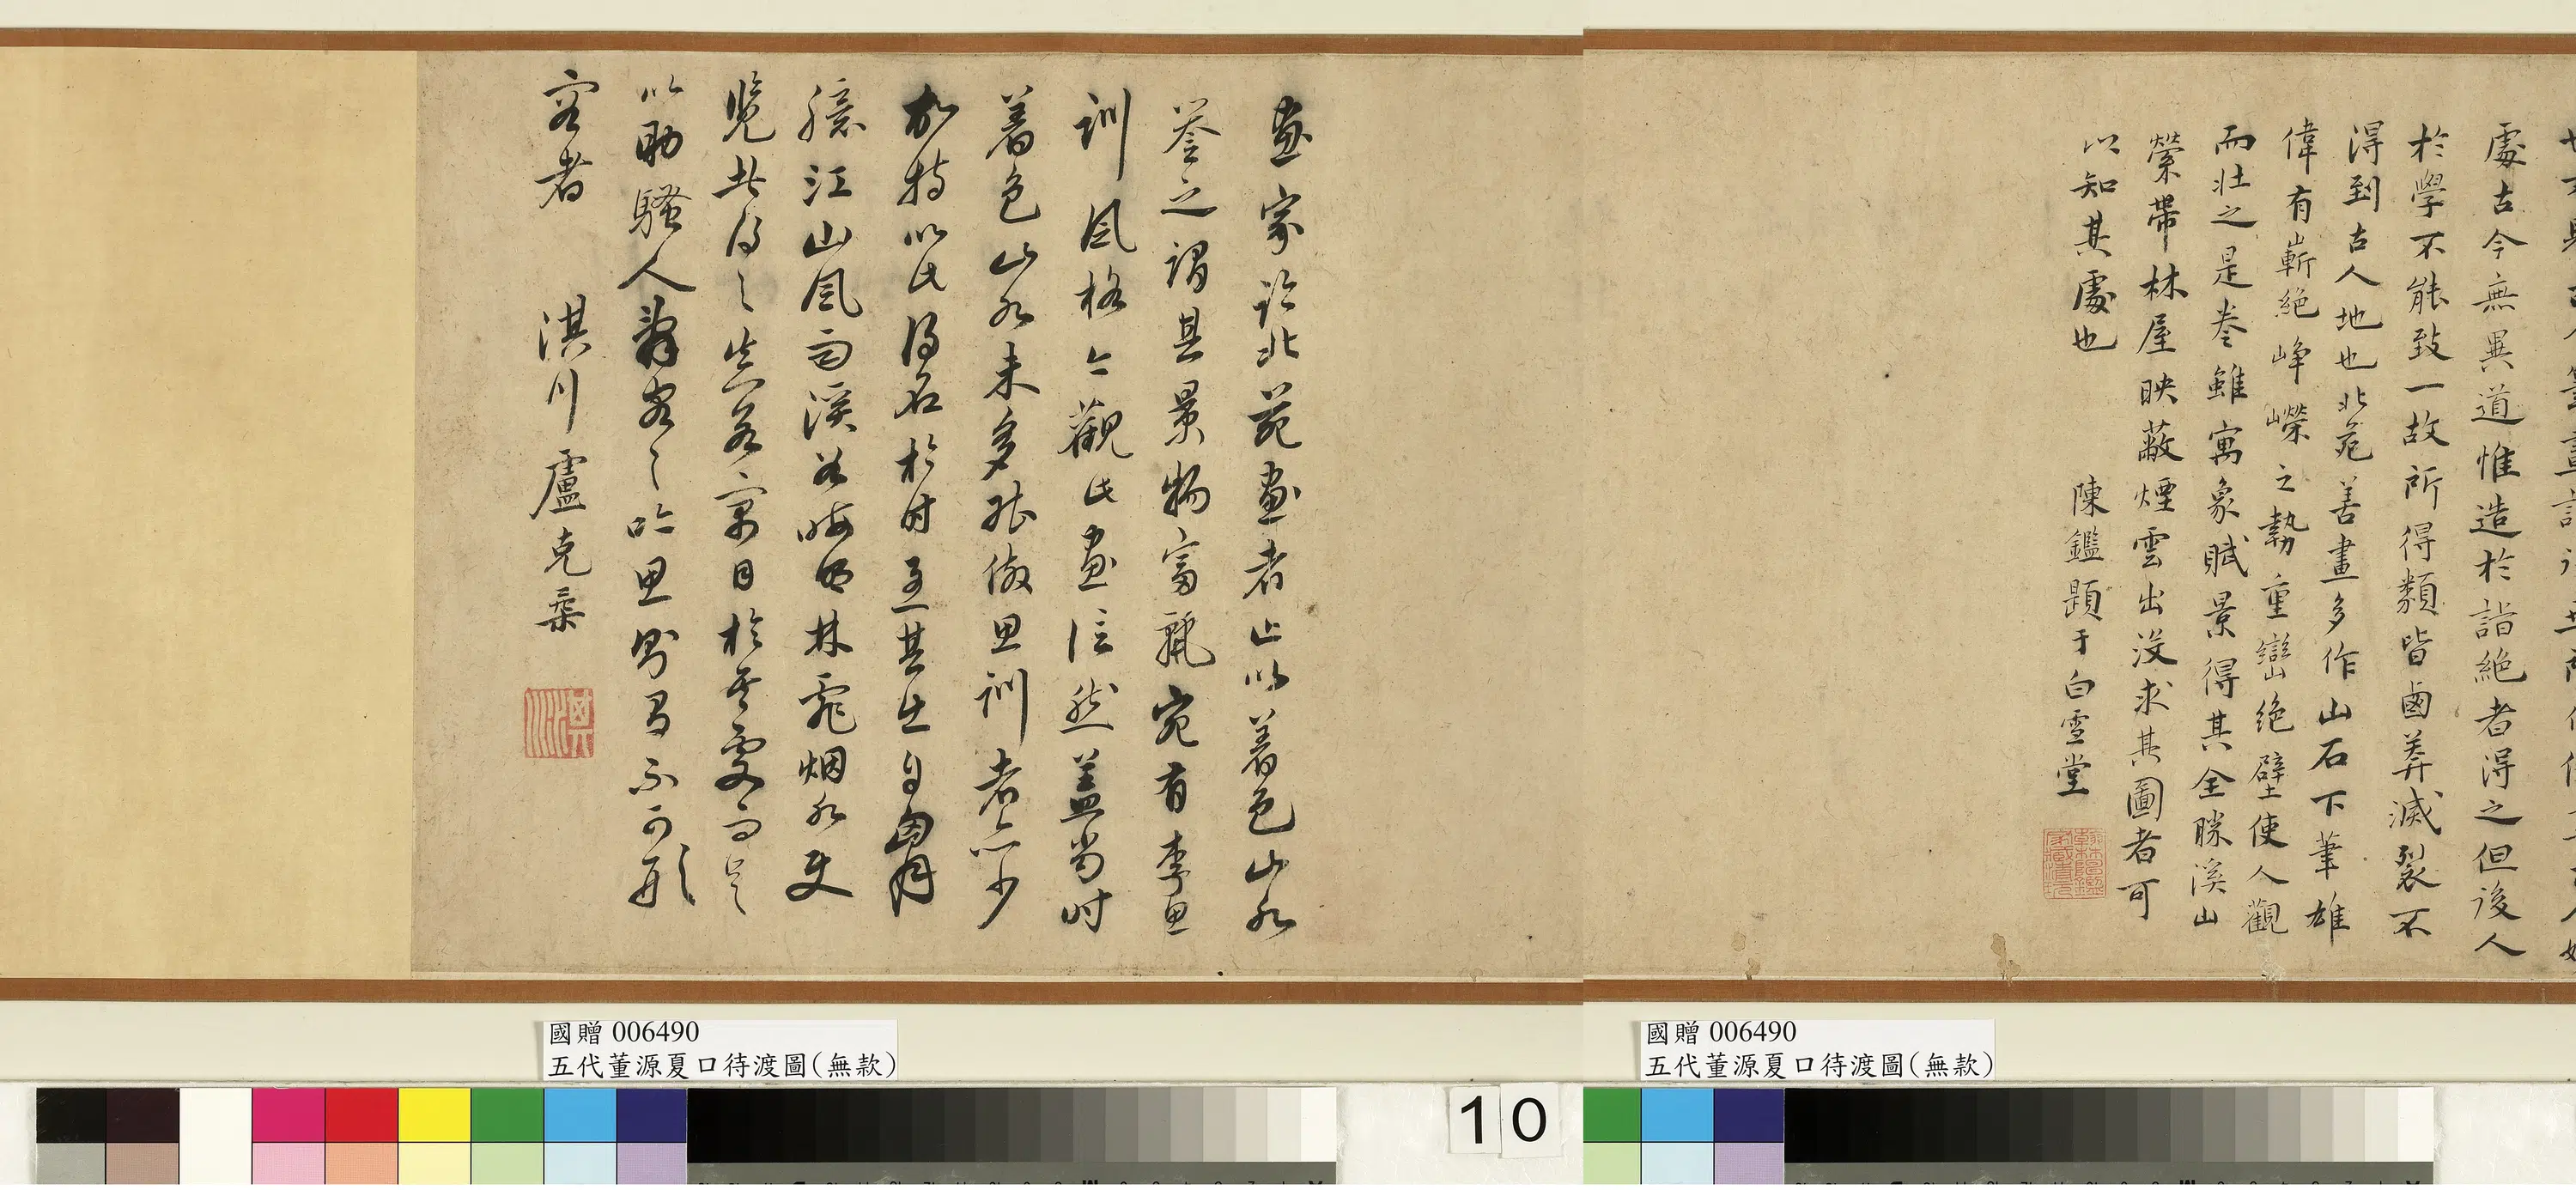 處古今無異道惟造於詣絕者得之但後人
於學不能致一故所得類皆鹵莽滅裂不
得到古人地也北苑善畫多作山石下筆雄
偉有嶄絕崢嶸之勢重巒絕壁使人觀
而壯之是卷雖寓象賦景得其全勝溪山
縈帶林屋映蔽煙雲出沒求其圖者可
以知其處也 陳鑑題于白雪堂
畫家論北苑畫者止以着色山水
譽之謂其景物富麗宛有李思
訓風格今觀此畫信然蓋當時
着色山水未多能倣思訓者亦少
故特以此得名於時至其出自胷
臆江山風雨溪谷晦明林霏烟水使
覽此得之真若寓目於其處而足
以助騷人辭客之吟思則有不可形
容者 淇川盧克柔
國贈 006490
五代董源夏口待渡圖(無款)
10
國贈 006490
五代董源夏口待渡圖(無款)